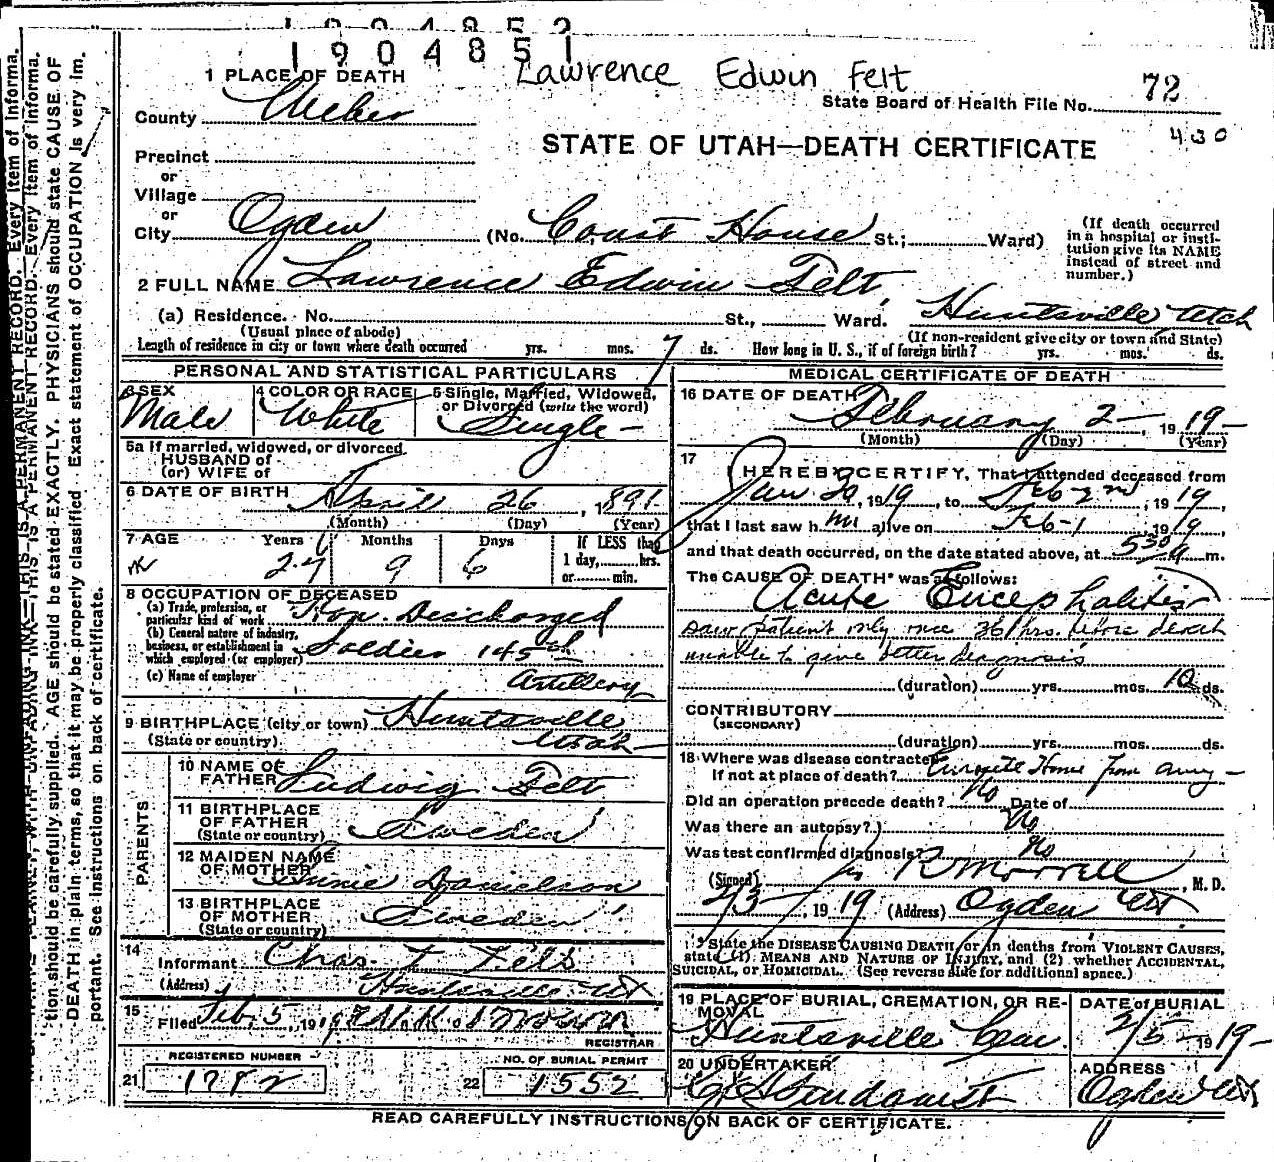 1904852
1904851
Lawrence Edwin Felt
72
State Board of Health File No.
430
1 PLACE OF DEATH
County Weber
STATE OF UTAH—DEATH CERTIFICATE
Precinct
or
Village
or
City Ogden (No. Court House St.; Ward)
(If death occurred in a hospital or institution give its NAME instead of street and number.)
2 FULL NAME Lawrence Edwin Felt,
(a) Residence. No. St., Ward. Huntsville Utah
(Usual place of abode) (If non-resident give city or town and State)
Length of residence in city or town where death occurred yrs. mos. 7 ds. How long in U. S., if of foreign birth? yrs. mos. ds.
PERSONAL AND STATISTICAL PARTICULARS
3 SEX Male
4 COLOR OR RACE White
5 Single, Married, Widowed, or Divorced (write the word) Single
5a If married, widowed, or divorced
HUSBAND of
(or) WIFE of
6 DATE OF BIRTH April 26, 1891
(Month) (Day) (Year)
7 AGE Years Months Days If LESS than
27 9 6 1 day, hrs.
or min.
8 OCCUPATION OF DECEASED
(a) Trade, profession, or particular kind of work Hon. Discharged
(b) General nature of industry, business, or establishment in which employed (or employer) Soldier 145th
(c) Name of employer Artillery
9 BIRTHPLACE (city or town) Huntsville
(State or country) Utah
PARENTS
10 NAME OF FATHER Ludwig Felt
11 BIRTHPLACE OF FATHER (State or country) Sweden
12 MAIDEN NAME OF MOTHER Annie Danielson
13 BIRTHPLACE OF MOTHER (State or country) Sweden
14
Informant Chas. Felt
(Address) Huntsville Ut
15
Filed Feb. 5, 1919
REGISTRAR
REGISTERED NUMBER
21 1782
NO. OF BURIAL PERMIT
22 1552
MEDICAL CERTIFICATE OF DEATH
16 DATE OF DEATH
February 2, 1919
(Month) (Day) (Year)
17
I HEREBY CERTIFY, That I attended deceased from
Jan 30, 1919, to Feb 2nd, 1919,
that I last saw him alive on Feb-1 1919,
and that death occurred, on the date stated above, at 530 a m.
The CAUSE OF DEATH* was as follows:
Acute Encephalitis
Saw patient only once 36 hrs. before death
unable to give better diagnosis
(duration) yrs. mos. 10 ds.
CONTRIBUTORY
(SECONDARY)
(duration) yrs. mos. ds.
18 Where was disease contracted
If not at place of death? Enroute Home from army
Did an operation precede death? No Date of
Was there an autopsy? No
Was test confirmed diagnosis? No
(Signed) Morrell, M. D.
2/3, 1919 (Address) Ogden Ut
* State the DISEASE CAUSING DEATH, or in deaths from VIOLENT CAUSES,
state (1) MEANS AND NATURE OF INJURY, and (2) whether ACCIDENTAL,
SUICIDAL, or HOMICIDAL. (See reverse side for additional space.)
19 PLACE OF BURIAL, CREMATION, OR REMOVAL
Huntsville Cem.
DATE of BURIAL
2/5 1919
20 UNDERTAKER
Lindquist
ADDRESS
Ogden Ut
READ CAREFULLY INSTRUCTIONS ON BACK OF CERTIFICATE.
THIS IS A PERMANENT RECORD. Every item of informa-
THIS IS A PERMANENT RECORD. Every item of informa-
tion should be carefully supplied. AGE should be stated EXACTLY. PHYSICIANS should state CAUSE OF
DEATH in plain terms, so that it may be properly classified. Exact statement of OCCUPATION is very im-
portant. See instructions on back of certificate.